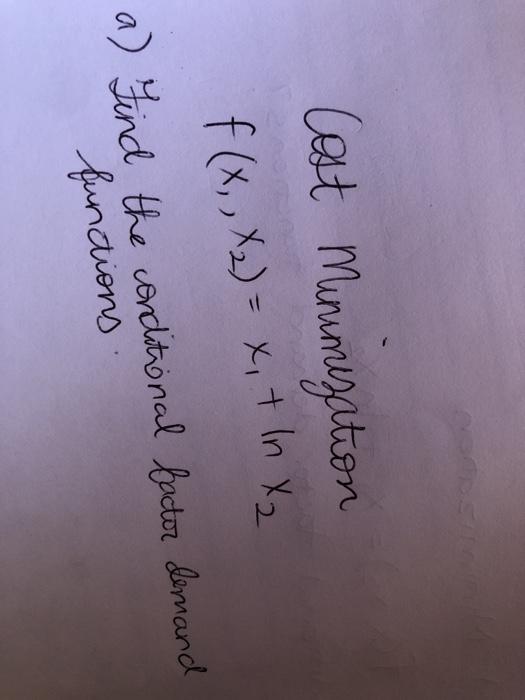 Cost Minimization
f(x₁, x₂) = x₁ + ln x₂
a) Find the conditional factor demand
functions.